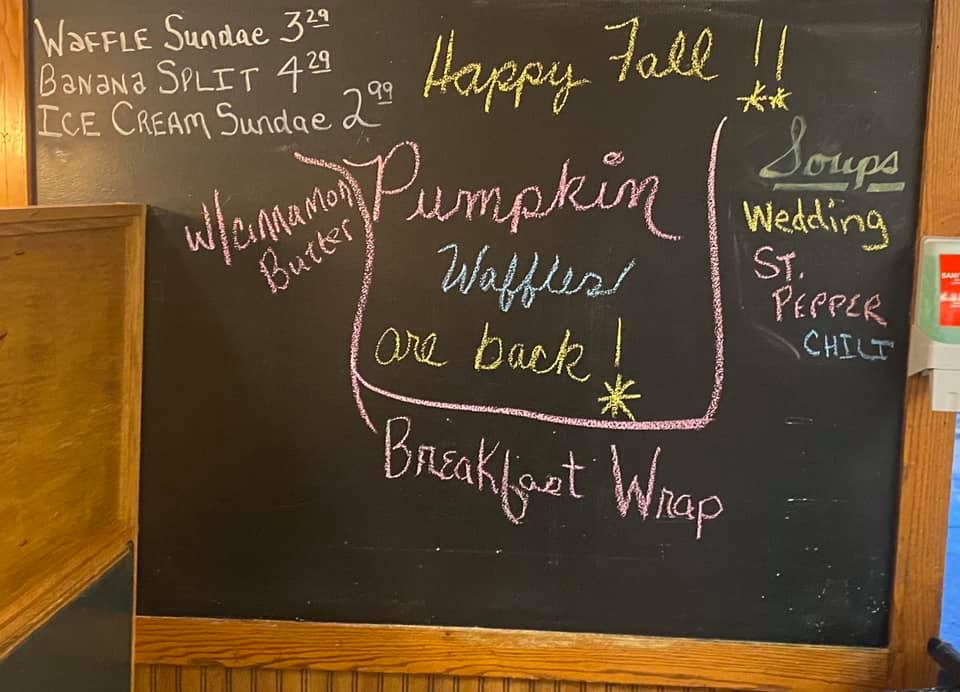 Waffle Sundae 3.29
Banana Split 4.29
Ice Cream Sundae 2.99
Happy Fall !!
w/cinnamon
Butter
Pumpkin
Waffles
are back!
Breakfast Wrap
Soups
Wedding
St.
Pepper
Chili